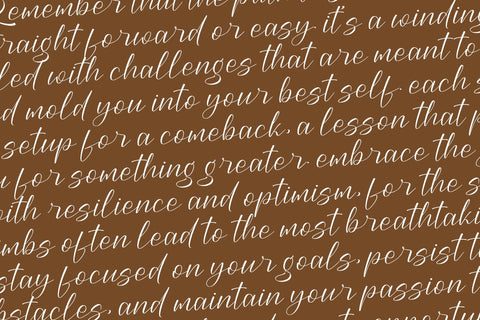 Remember that the
straight forward or easy. it's a winding
filled with challenges that are meant to
d mold you into your best self. each s
setup for a comeback, a lesson that p
u for something greater. embrace the
with resilience and optimism, for the s
imbs often lead to the most breathtaki
stay focused on your goals, persist t
obstacles, and maintain your passion